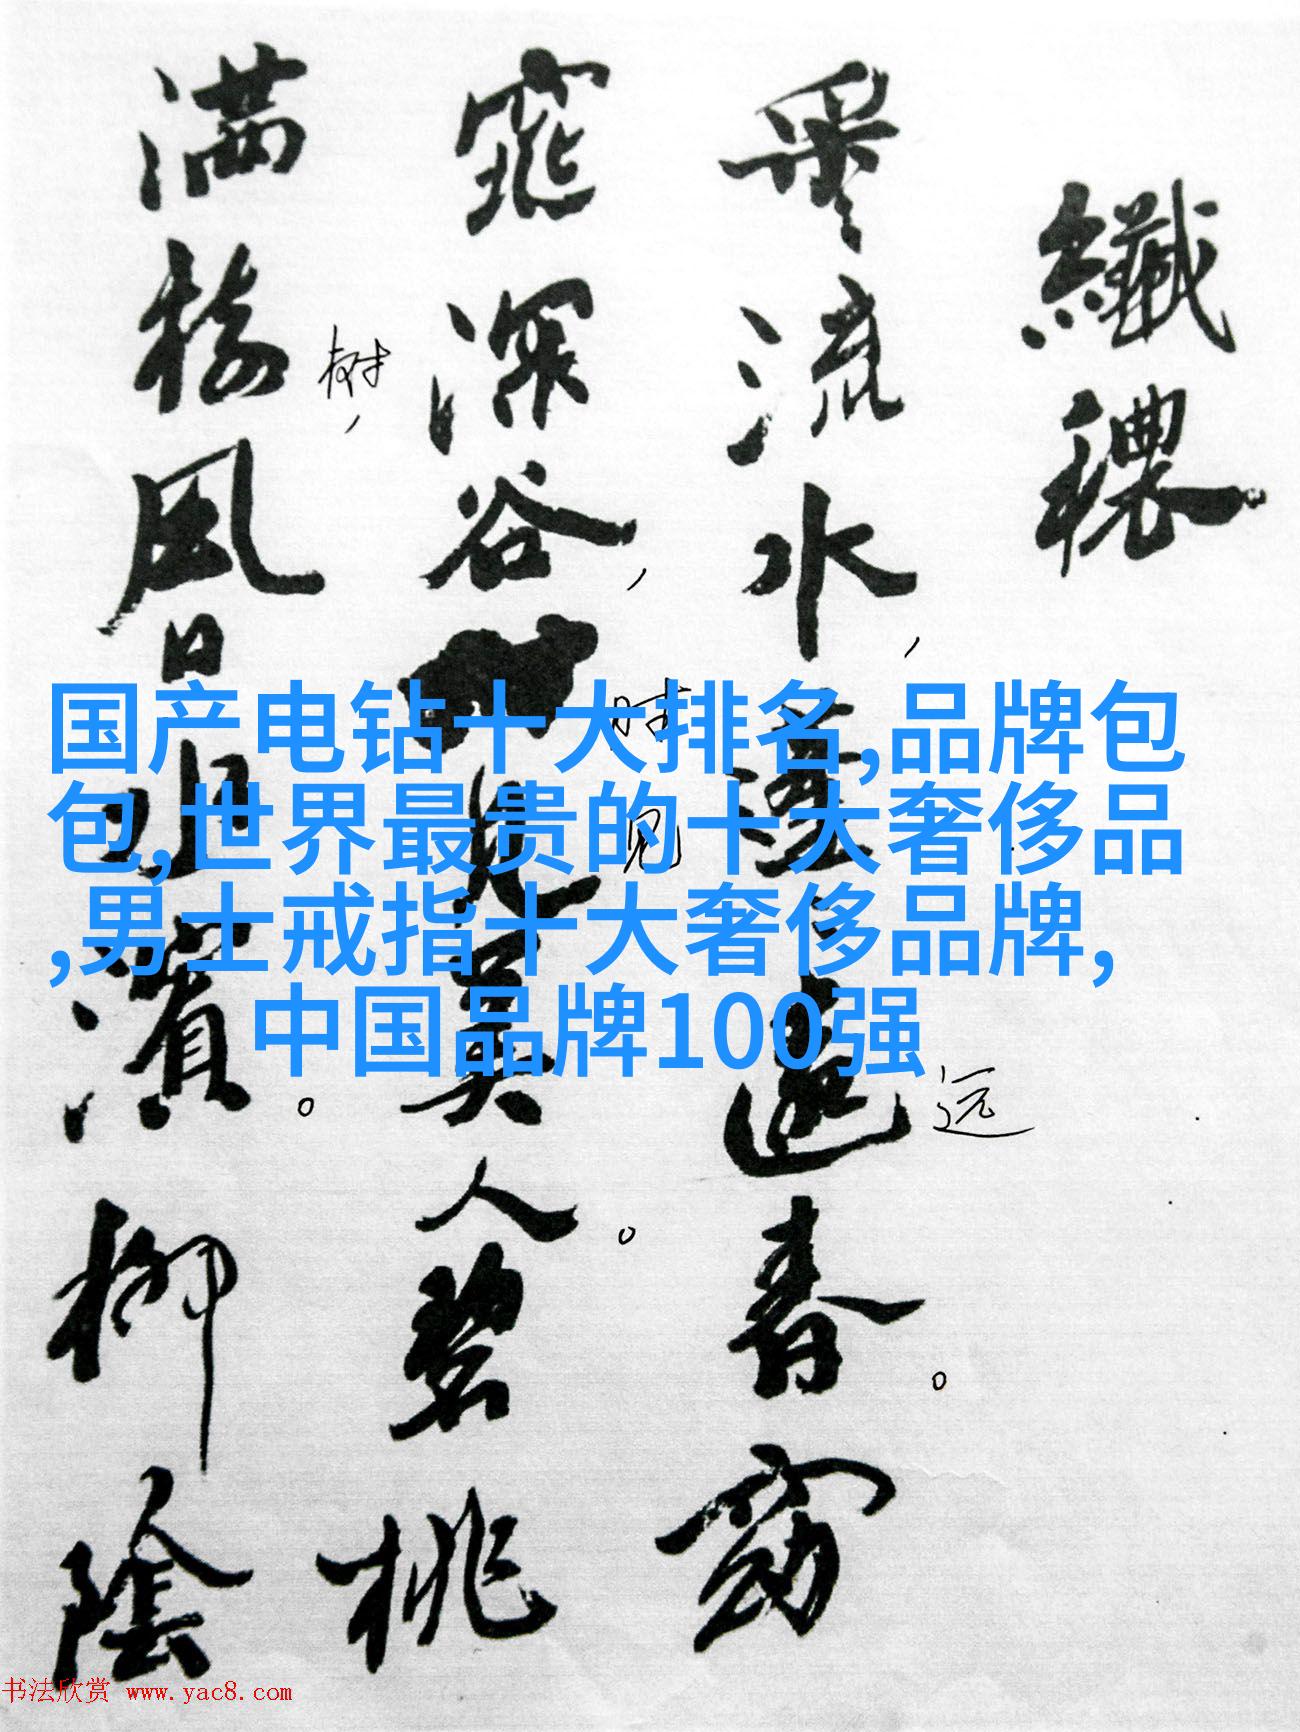 纖穠
采〻流水，蓬〻遠春。窈
远
窕深谷，見美人。碧桃
时
见
满樹風日水濱。柳陰
树，
国产电钻十大排名,品牌包
包,世界最贵的十大奢侈品
,男士戒指十大奢侈品牌,
中国品牌100强
书法欣赏 www.yac8.com